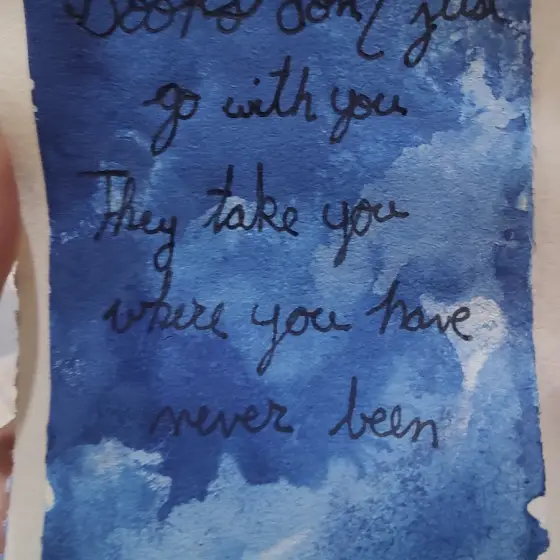 Books don't just
go with you
They take you
where you have
never been